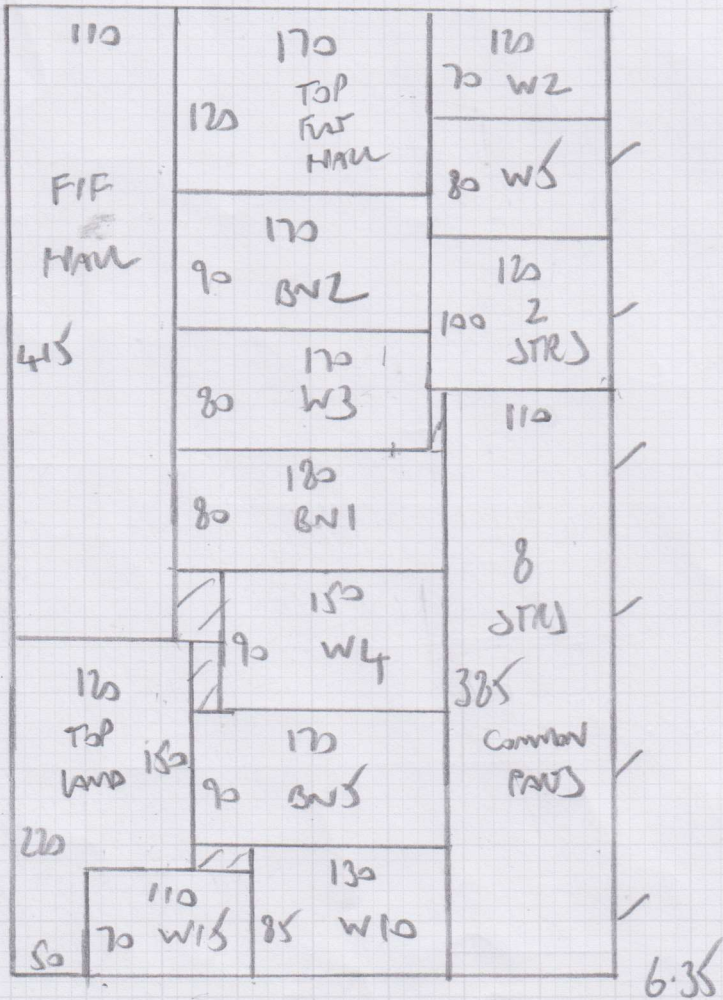 110
F/F
HALL
415
170
TOP
120
FLR
HALL
120
70 W2
80 W5
170
90 BN2
120
100 2
STRS
170
80 W3
180
80 BN1
110
8
STRS
385
COMMON
PARTS
150
90 W4
120
TOP
150
LAND
220
50
170
90 BN5
110
70 W15
130
85 W10
6.35